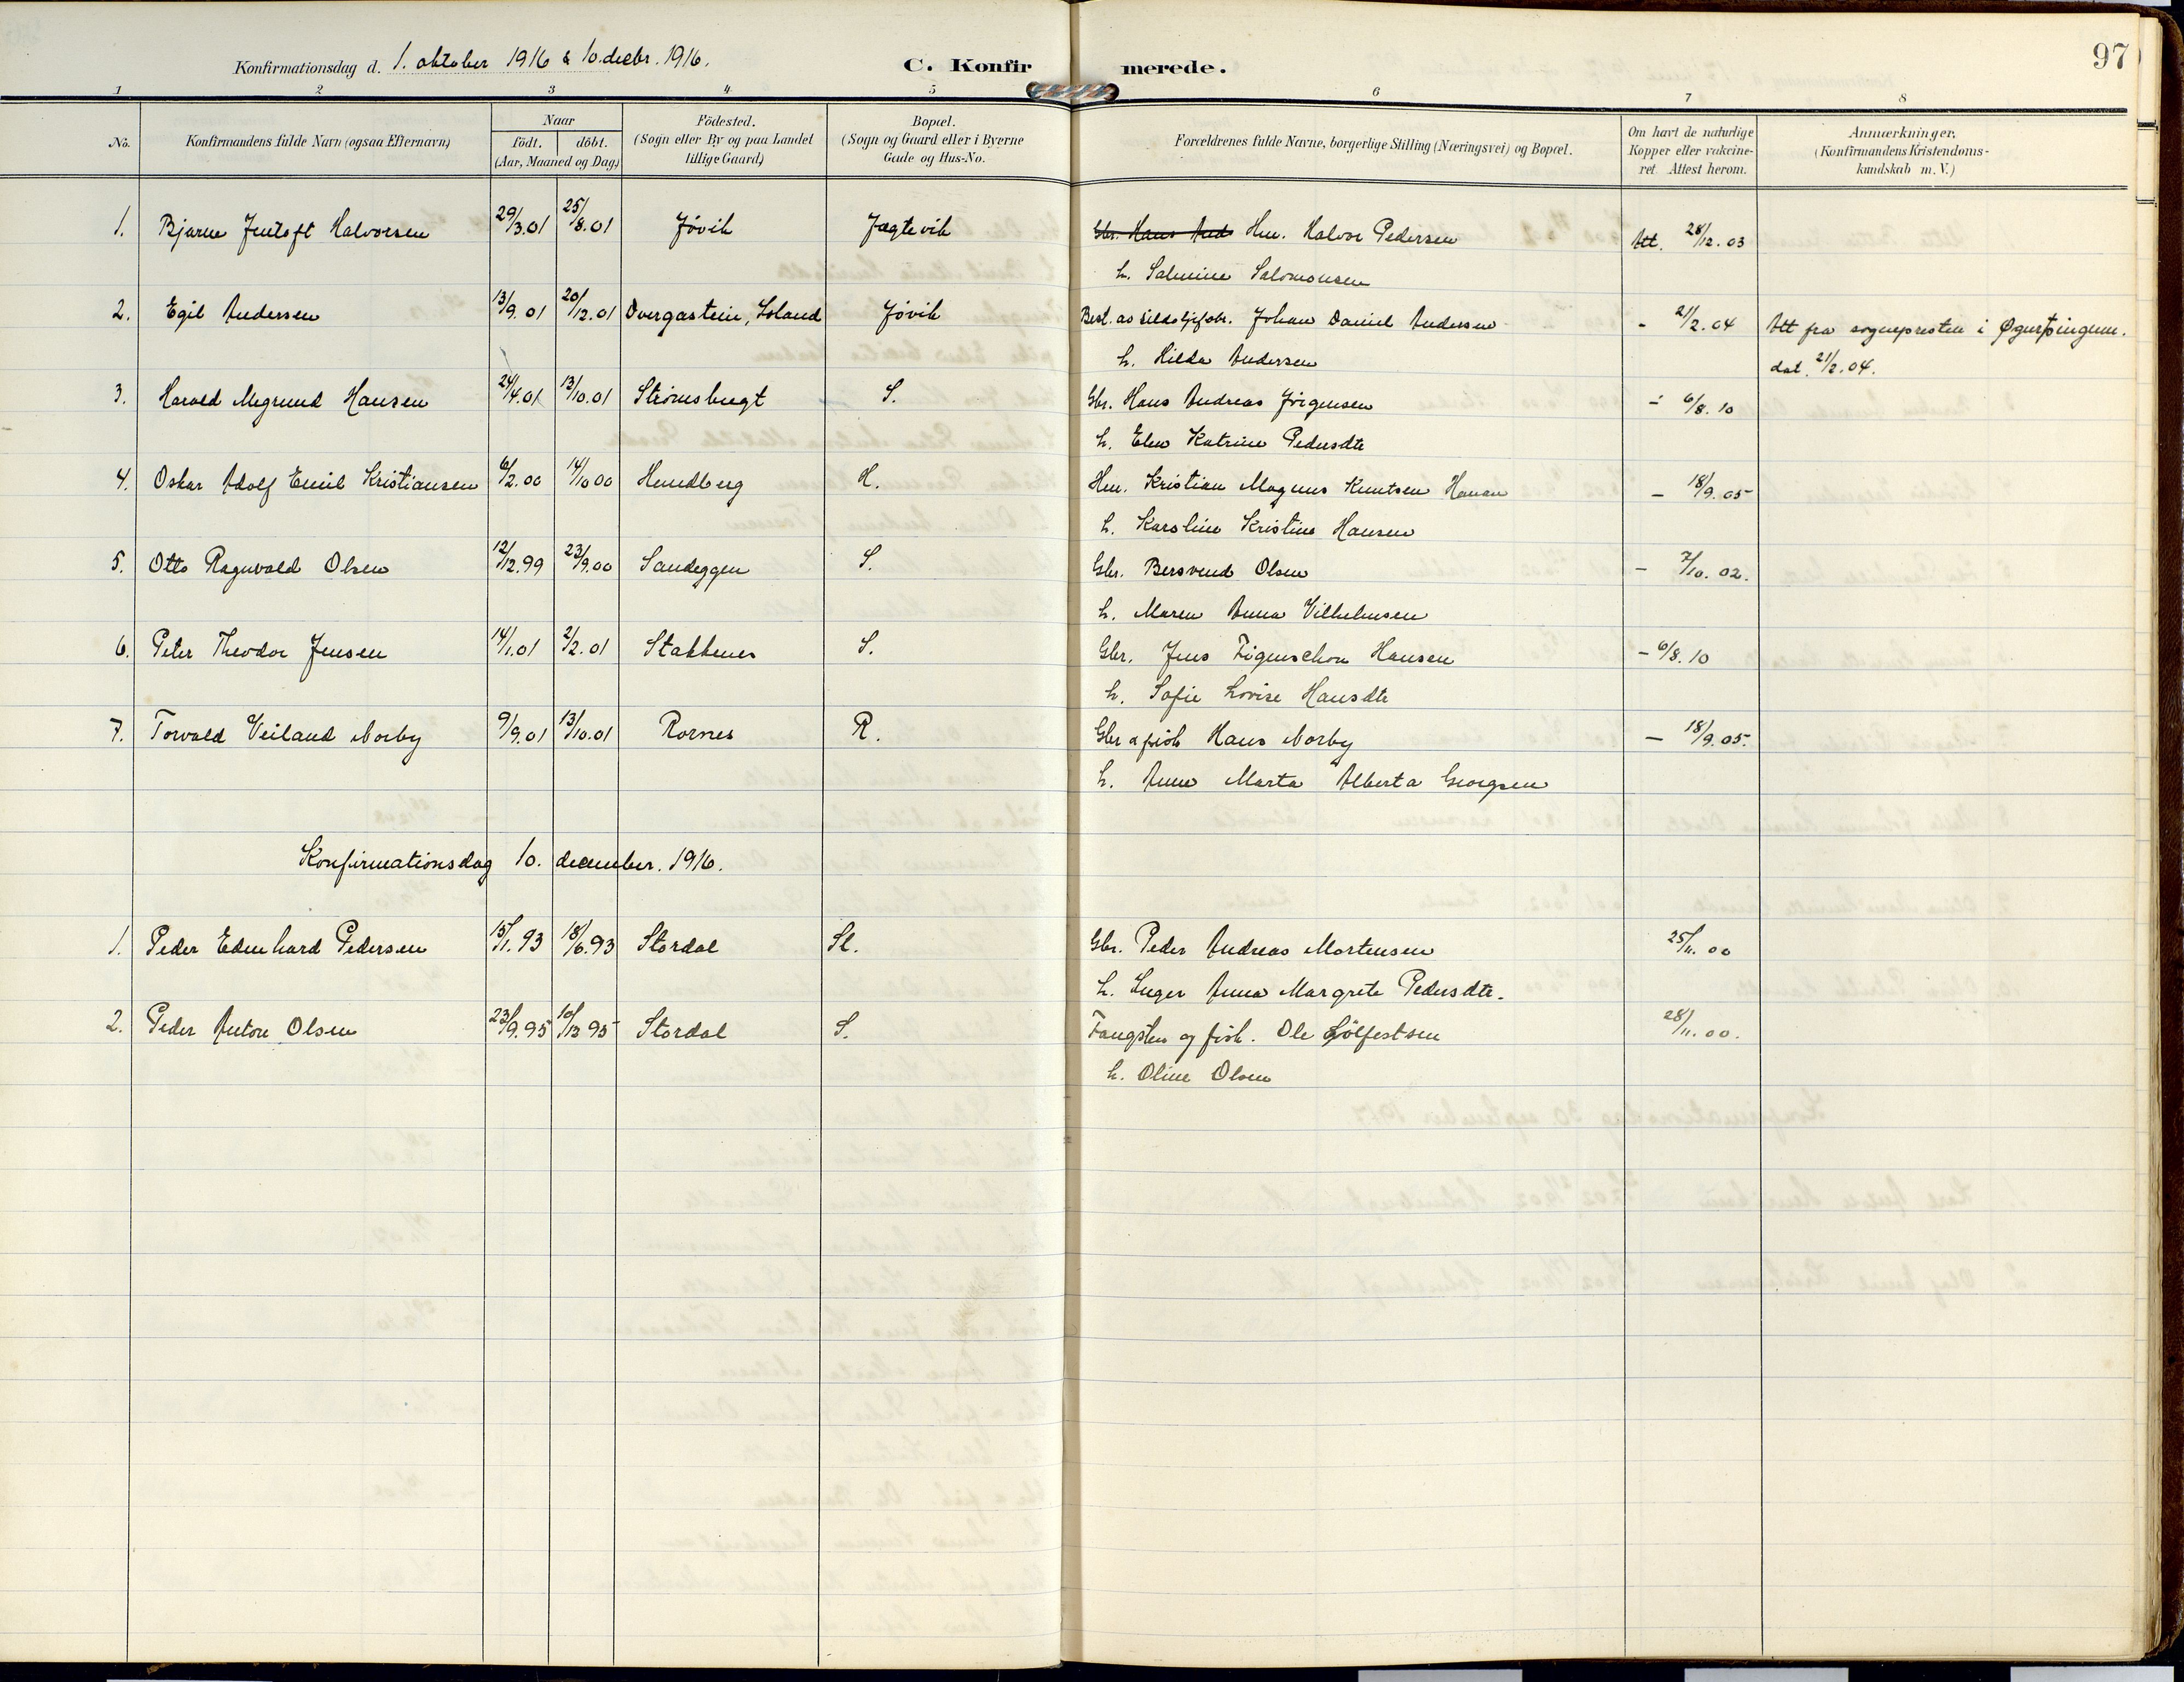 97
Konfirmationsdag d. 1. oktober 1916 & 10. decbr. 1916.
C. Konfirmerede.
1 2 3 4 5 6 7 8
No.
Konfirmandens fulde Navn (ogsaa Efternavn)
Naar
födt. döbt.
(Aar, Maaned og Dag)
Födested.
(Sogn eller By og paa Landet
tillige Gaard)
Bopæl.
(Sogn og Gaard eller i Byerne
Gade og Hus-No.
Forældrenes fulde Navne, borgerlige Stilling (Næringsvei) og Bopæl.
Om havt de naturlige
Kopper eller vakcine-
ret. Attest herom.
Anmærkninger,
(Konfirmandens Kristendoms-
kundskab m. V.)
1. Bjarne Jentoft Halvorsen 29/3.01 25/8.01 Jövik Jægtevik Gbr. Hans And Hm. Halvor Pedersen Att. 28/12.03
h. Salmine Salomonsen
2. Egil Andersen 13/9.01 20/12.01 Overgastein, Island Jövik Johan Daniel Andersen - 21/2.04 Att fra sognepresten i Øgurþingum.
h. Hilda Andersen dat. 21/2.04.
3. Harald Hansen 24/4.01 13/10.01 Strömsbugt S. Gbr. Hans Andreas Jörgensen - 6/8.10
h. Elen Katrine Pedersdtr
4. Oskar Adolf Emil Kristiansen 6/2.00 14/10 00 Hundberg H. Hm. Kristian Magnus Knutsen Hansen - 18/9.05
h. Karoline Kristine Hansen
5. Otto Ragnvald Olsen 12/12.99 23/9.00 Sandeggen S. Gbr. Bersvend Olsen - 7/10.02.
h. Maren Anna Vilhelmsen
6. Peter Theodor Jensen 14/1.01 2/2.01 Stakkenes S. Gbr. Jens Figenschou Hansen - 6/8.10
h. Sofie Lovise Hansdtr
7. Torvald Veiland Norby 9/9.01 13/10.01 Rornes R. Gbr & fisk Hans Norby - 18/9.05.
h. Anne Marta Alberta Georgsen
Konfirmationsdag 10. december. 1916.
1. Peder Edenhard Pedersen 15/1.93 18/6.93 Stordal St. Gbr. Peder Andreas Mortensen 25/11.00
h. Inger Anna Margrete Pedersdtr.
2. Peder Anton Olsen 23/9.95 Stordal S. Fangstm og fisk. Ole Sölfestsen 28/11.00.
h. Oline Olsen